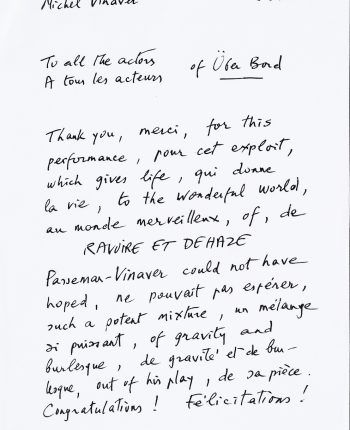 Michel Vinaver
To all the actors of Über Bord
A tous les acteurs
Thank you, merci, for this
performance, pour cet exploit,
which gives life, qui donne
la vie, to the wonderful world,
au monde merveilleux, of, de
RAVOIRE ET DEHAZE
Passemar-Vinaver could not have
hoped, ne pouvait pas espérer,
such a potent mixture, un mélange
si puissant, of gravity and
burlesque, de gravité et de bur-
lesque, out of his play, de sa pièce.
Congratulations ! Félicitations !